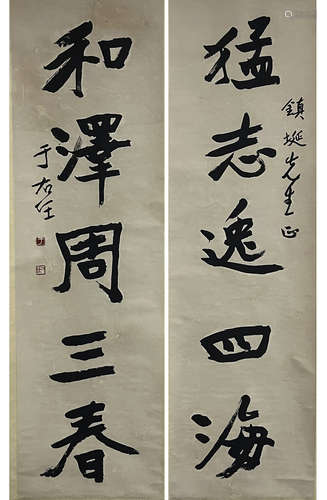 猛志逸四海
鎮埏先生正
和澤周三春
于右任